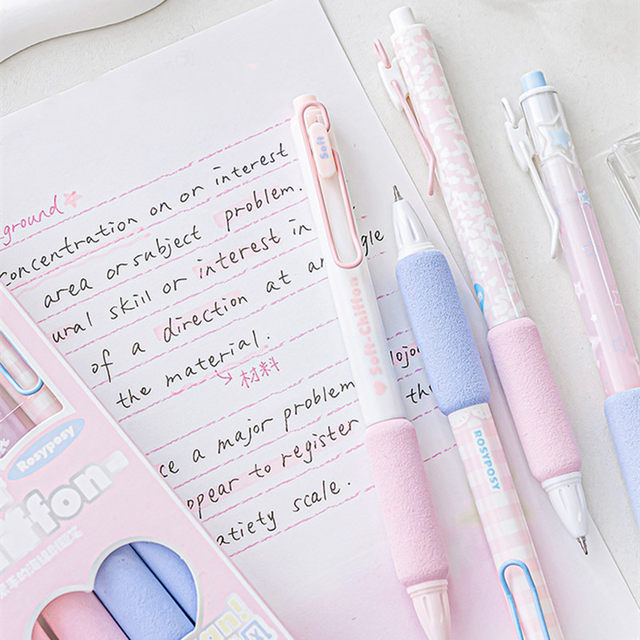 ground
concentration on or interest
area or subject problem.
ural skill or interest in
of a direction at an gle
the material.
材料
ce a major problem
appear to register
atiety scale.
Soft
Soft-Chiffon
ROSYPOSY
Rosyposy
iffon